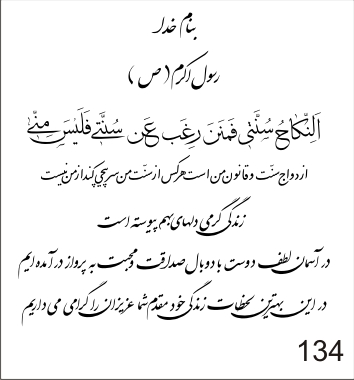 بنام خدا
رسول اکرم ( ص )
اَلنِّکاحُ سُنَّتی فَمَنَ رِغَبَ عَن سُنَّتی فَلَیسَ مِنّی
ازدواج سنت و قانون من است هر کس از سنت من سرپیچی کند از من نیست
زندگی گرمی دلهای بهم پیوسته است
در آسمان لطف دوست با دو بال صداقت و محبت به پرواز درآمده ایم
در این بهترین لحظات زندگی خود مقدم شما عزیزان را گرامی می داریم
134